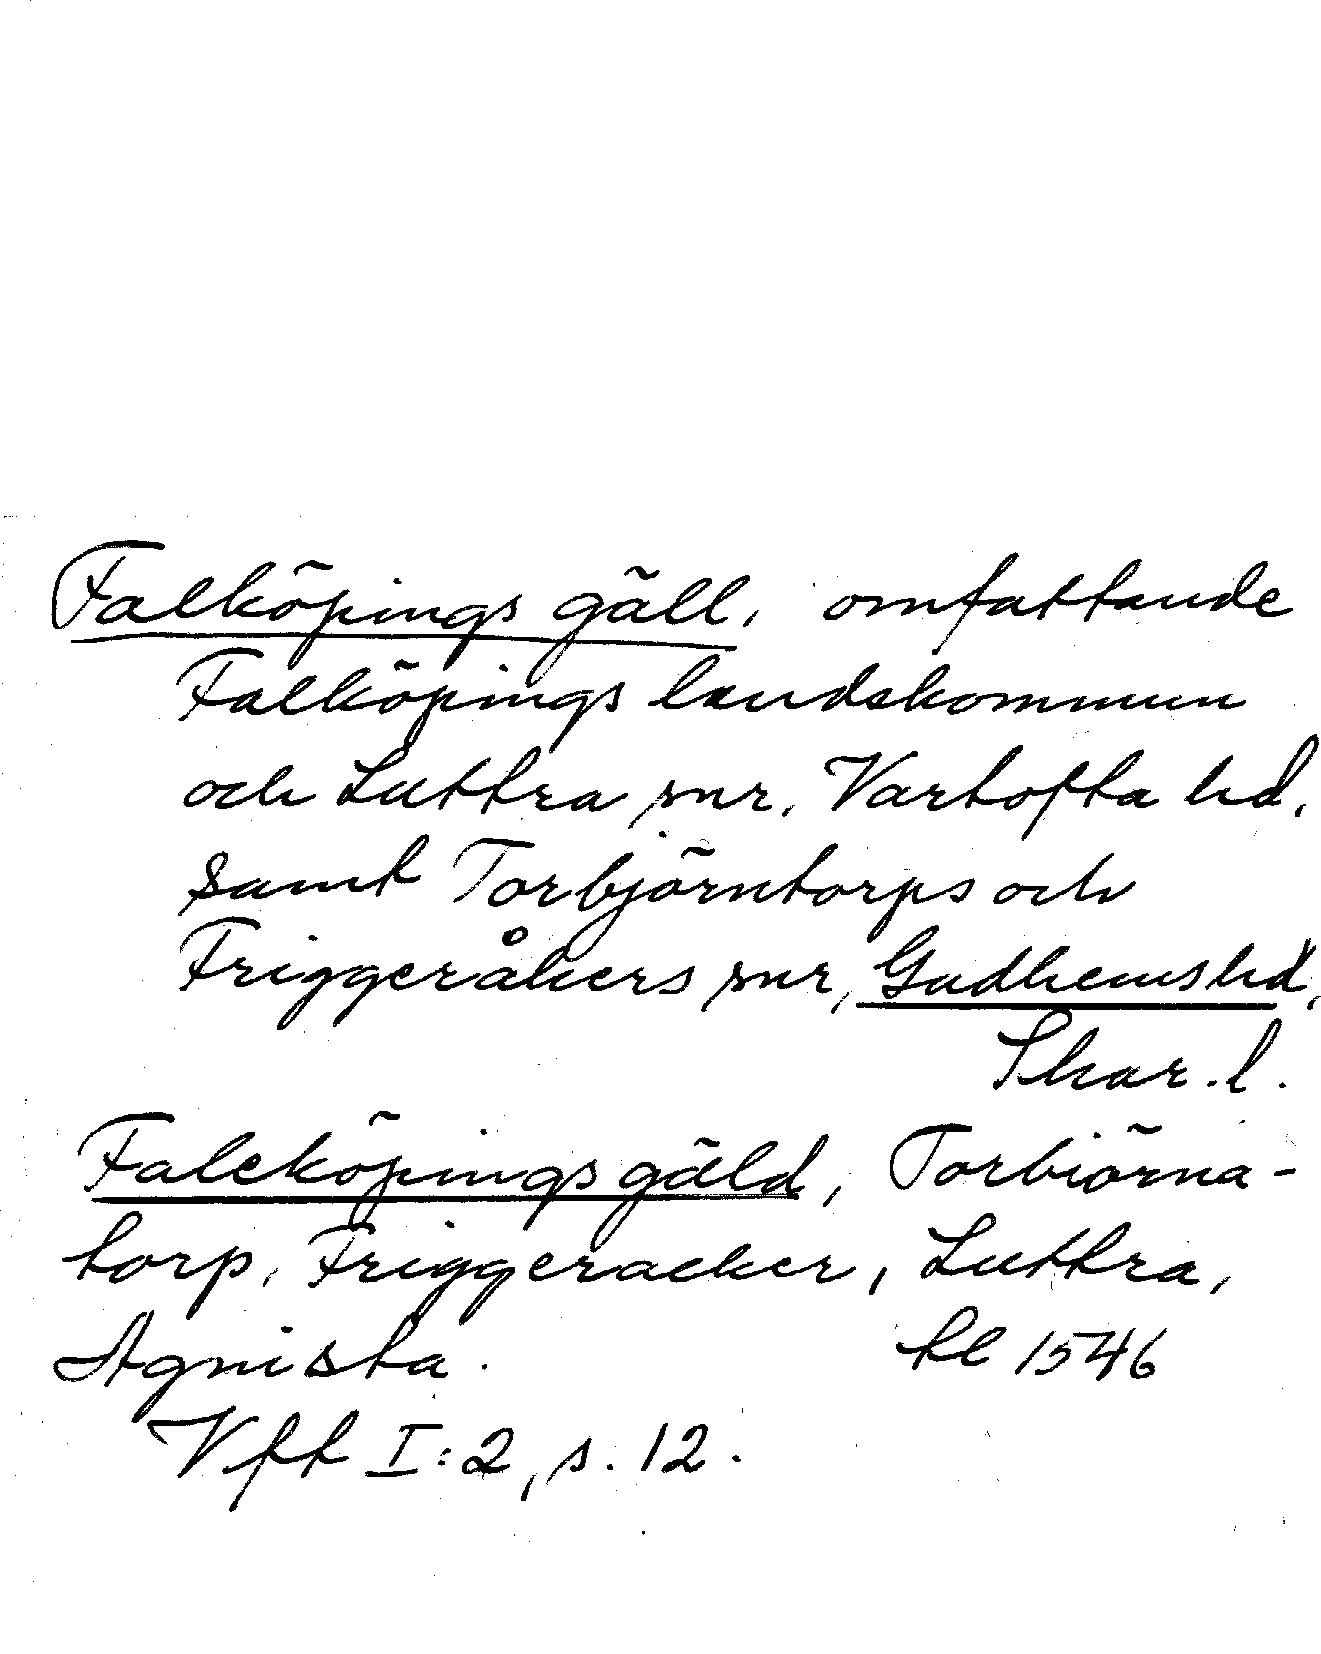 Falköpings gäll, omfattande
Falköpings landskommun
och Luttra snr, Vartofta hd,
samt Torbjörntorps och
Friggeråkers snr, Gudhems hd,
Skar. l.
Faleköpings gäld, Torbiörna-
torp, Friggeracker, Luttra,
Agnista. tl 1546
Vft I:2, s. 12.